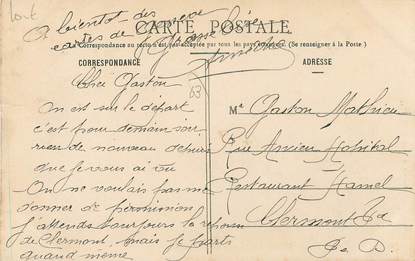 A bientôt des
cartes de
CARTE POSTALE
La correspondance au recto n'est pas acceptée par tous les pays étrangers. (Se renseigner à la Poste)
CORRESPONDANCE
ADRESSE
Cher Gaston
On est sur le départ
c'est pour demain soir
rien de nouveau depuis
que je vous ai vu
On ne voulais pas me
donner de permission
J'attends toujours la réponse
de Clermont mais je parts
quand même
63
Mr Gaston Mathieu
Rue Ancien Hopital
Restaurant Hamel
Clermont Fd
P. de D.